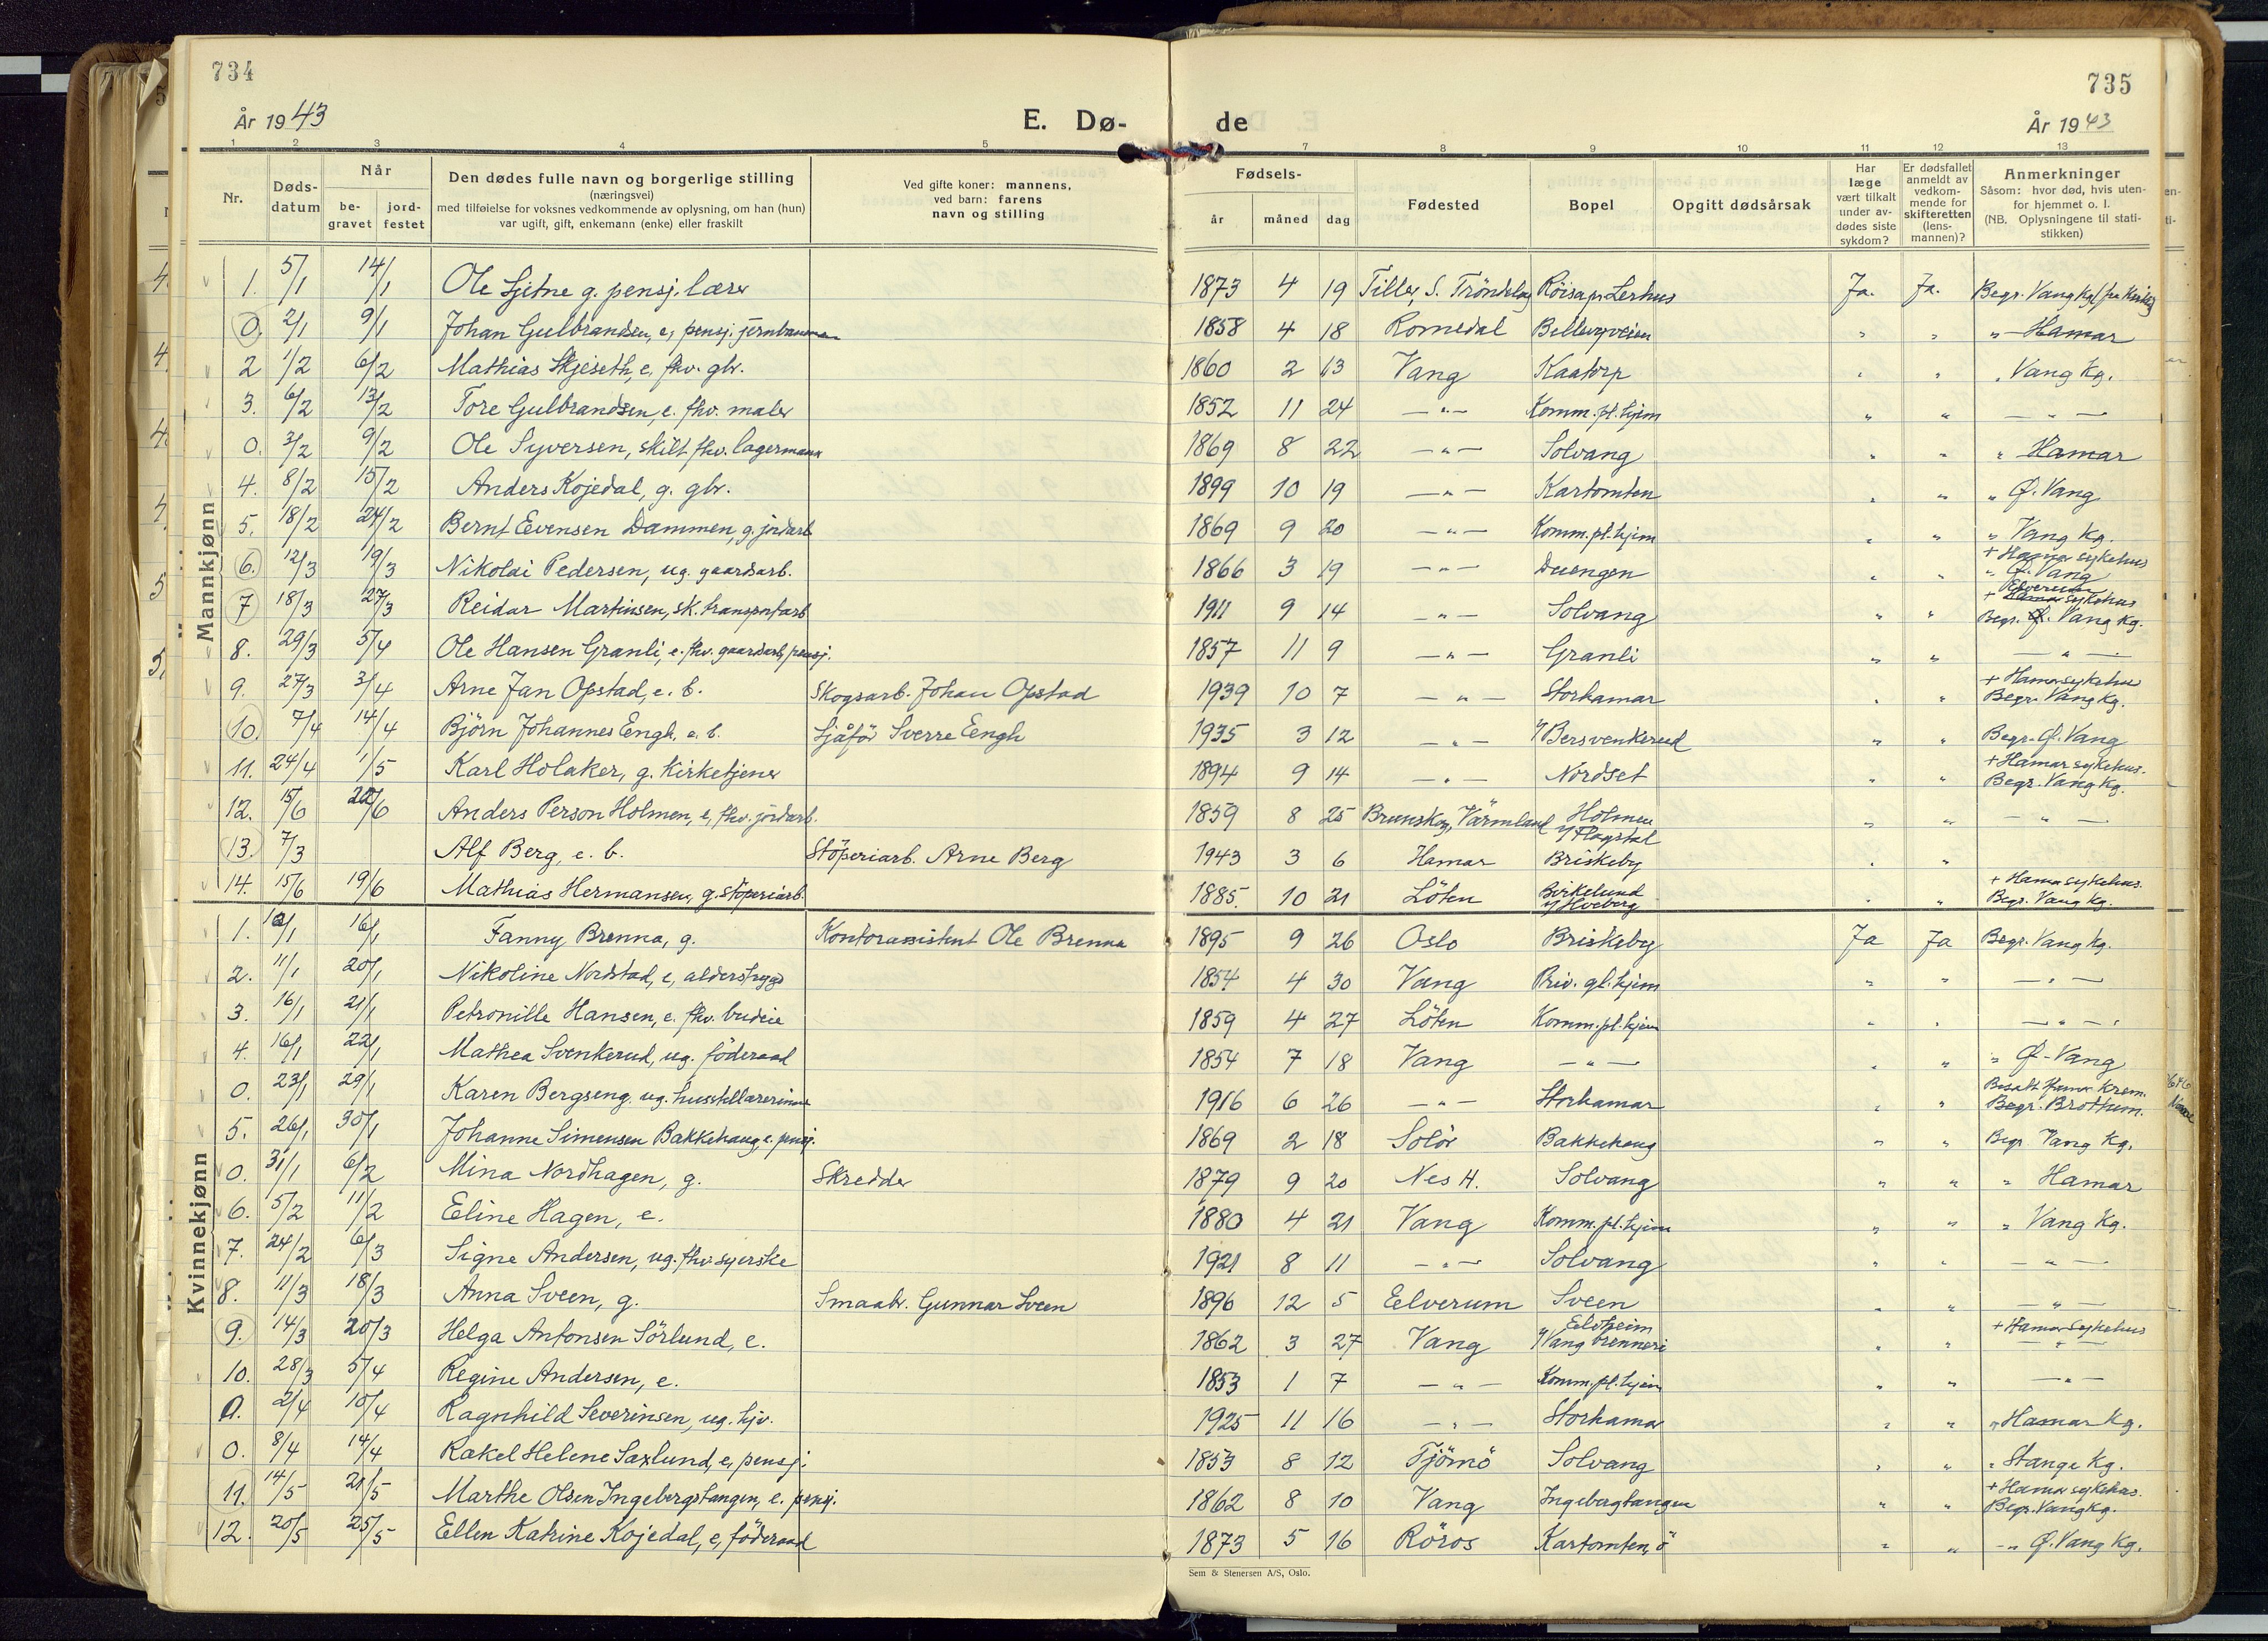 734
År 1943
E. Dø-
1 2 3 4 5
Nr. Døds-datum Når be-gravet jord-festet Den dødes fulle navn og borgerlige stilling (næringsvei) med tilføielse for voksnes vedkommende av oplysning, om han (hun) var ugift, gift, enkemann (enke) eller fraskilt Ved gifte koner: mannens, ved barn: farens navn og stilling
Mannkjønn
1. 5/1 14/1 Ole Sjetne g. pensj. lærer
0. 2/1 9/1 Johan Gulbrandsen, e, pensj. jernbanemann
2 1/2 6/2 Mathias Skjeseth, e. fhv. gbr.
3. 6/2 13/2 Tore Gulbrandsen, e. fhv. maler
0. 3/2 9/2 Ole Syversen, skilt fhv. lagermann
4. 8/2 15/2 Anders Kojedal, g. gbr.
5. 18/2 24/2 Bernt Evensen Dammen, g. jordarb
6. 12/3 19/3 Nikolai Pedersen, ug. gaardsarb.
7 18/3 27/3 Reidar Martinsen, sk. transportarb
8. 29/3 5/4 Ole Hansen Granli, e. fhv. gaardsarb, pensj.
9. 27/3 3/4 Arne Jan Opstad, e. b. Skogsarb. Johan Opstad
10. 7/4 14/4 Björn Johannes Engh. e. b. Sjåför Sverre Engh
11. 24/4 1/5 Karl Holaker, g. Kirketjener
12. 15/6 22/6 Anders Person Holmen, e, fhv. jordarb.
13. 7/3 Alf Berg, e. b. Stöperiarb. Arne Berg
14. 15/6 19/6 Mathias Hermansen, g. stöperiarb.
Kvinnekjønn
1. 10/1 16/1 Fanny Brenna, g. Kontorassistent Ole Brenna
2. 11/1 20/1 Nikoline Nordstad, e, alderstrygd
3. 16/1 21/1 Petronille Hansen, e. fhv. budeie
4. 16/1 22/1 Mathea Svenkerud, ug. föderaad
0. 23/1 29/1 Karen Bergseng. ug. husstellærerinne
5. 26/1 30/1 Johanne Simensen Bakkehaug, e. pensj.
0. 31/1 6/2 Mina Nordhagen, g. Skredder
6. 5/2 11/2 Eline Hagen, e.
7. 24/2 6/3 Signe Andersen, ug. fhv. syerske
8. 11/3 18/3 Anna Sveen, g. Smaabr. Gunnar Sveen
9. 14/3 20/3 Helga Antonsen Sörlund, e.
10. 28/3 5/4 Regine Andersen, e.
0. 2/4 10/4 Ragnhild Severinsen, ug. hjv.
0. 8/4 14/4 Rakel Helene Saxlund, e, pensj.
11. 14/5 21/5 Marthe Olsen Ingebergstangen, e. pensj.
12. 20/5 25/5 Ellen Katrine Kojedal, e, föderaad
735
de
År 1943
7 8 9 10 11 12 13
Fødsels- år måned dag Fødested Bopel Opgitt dødsårsak Har læge vært tilkalt under av-dødes siste sykdom? Er dødsfallet anmeldt av vedkom-mende for skifteretten (lens-mannen)? Anmerkninger Såsom: hvor død, hvis uten-for hjemmet o. l. (NB. Oplysningene til stati-stikken)
1873 4 19 Tiller, S. Tröndelag Röisa pr. Lerhus Ja. Ja. Begr. Vang Kg.
1858 4 18 Romedal " " " Hamar
1860 2 13 Vang Kaatorp " " " Vang Kg.
1852 11 24 —"— Komm. pl. hjem " " —"—
1869 8 22 —"— Solvang " " " Hamar
1899 10 19 —"— Kartomten " " " Ø. Vang
1869 9 20 —"— Komm. pl. hjem " " " Vang Kg.
1866 3 19 —"— Duengen " " + Hamar sykehus " Ø. Vang
1911 9 14 —"— Solvang " " Elverum + Hamar sykehus Begr. Ø. Vang Kg.
1857 11 9 —"— Granli " " —"—
1939 10 7 —"— Storhamar " " + Hamar sykehus Begr. Vang Kg.
1935 3 12 —"— y/ Bersvenkerud " " Begr. Ø. Vang
1894 9 14 —"— Nordset " " + Hamar sykehus. Begr. Vang Kg.
1859 8 25 Brunskog, Värmland Holmen y/ Flagstad " " —"—
1943 3 6 Hamar Briskeby " "
1885. 10 21 Löten Birkelund y/ Hoeberg " " + Hamar sykehus. Begr. Vang Kg.
1895 9 26 Oslo Briskeby Ja Ja Begr. Vang Kg.
1854 4 30 Vang Priv. gl. hjem " " —"—
1859 4 27 Löten Komm. pl. hjem " " —"—
1854 7 18 Vang —"— " " " Ø. Vang
1916 6 26 —"— Storhamar " " Besatt Hamar Krem. Begr. Brottum.
1869 2 18 Solör Bakkehaug " " Begr. Vang Kg.
1879 9 20 Nes H. Solvang " " " Hamar
1880 4 21 Vang Komm. pl. hjem " " " Vang Kg.
1921 8 11 —"— Solvang " " —"—
1896 12 5 Elverum Sveen " " —"—
1862 3 27 Vang y/ Vang brenneri " " + Hamar sykehus —"—
1853 1 7 —"— Komm. pl. hjem " " —"—
1925 11 16 —"— Storhamar " " " Hamar Kg.
1853 8 12 Tjömö Solvang " " " Stange Kg.
1862 8 10 Vang Ingebergtangen " " + Hamar sykehus. Begr. Vang Kg.
1873 5 16 Röros Kartomten, ö " " —" Ø. Vang Kg.
Sem & Stenersen A/S, Oslo.